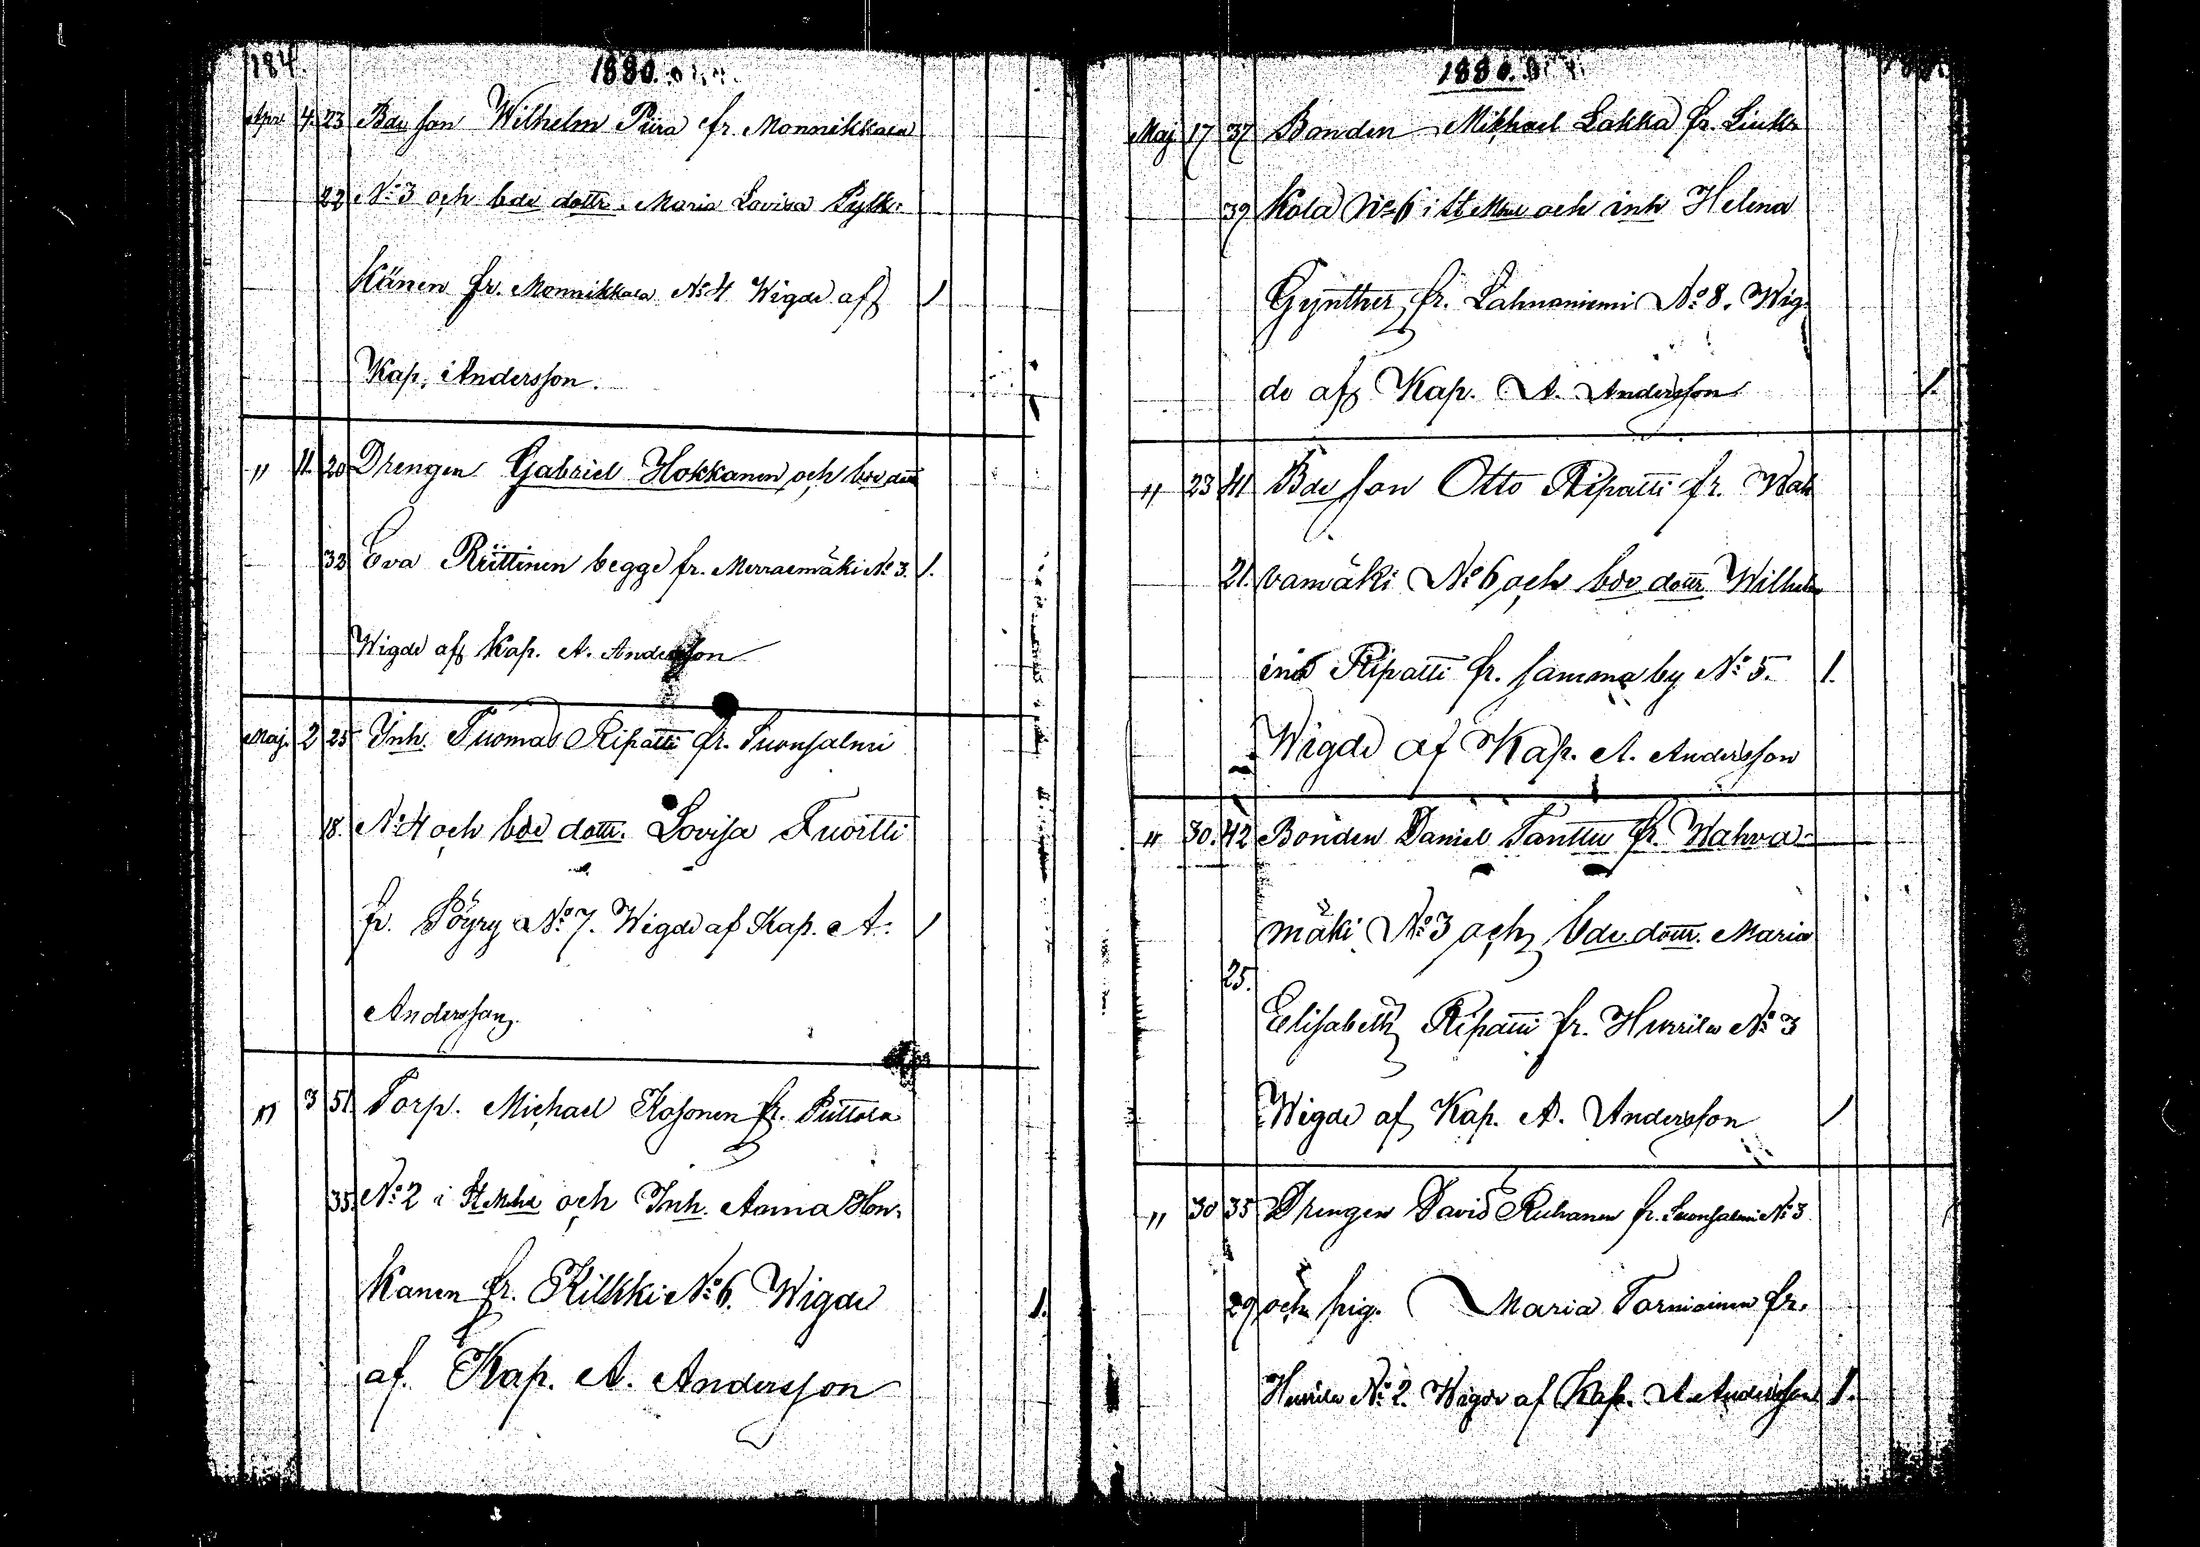 184.
1880.
Apr. 4. 23 Bde son Wilhelm Piira fr. Monnikkala
22 No 3 och bde dottr. Maria Lovisa Pylk-
känen fr. Monnikkala No 4 Wigde af 1
Kap. Andersson.
" 11. 20 Drengen Gabriel Hokkanen och bde dott
32 Eva Riittinen begge fr. No 3. 1.
Wigde af Kap. A. Andersson
Maj. 2 25 Inh. Tuomas Ripatti fr. Suonsalmi
18. No 4 och bde dottr. Lovisa Tuortti
fr. Pöyry No 7. Wigde af Kap. A. 1
Andersson.
" 3 51 Torp. Michael Kosonen fr. Puttola
35. No 2 i St Michel och Inh. Anna Hon-
kanen fr. Kilkki No 6. Wigde 1.
af Kap. A. Andersson
1880.
Maj 17 37 Bonden Mikhael Lakka fr. Liuk-
39 kola No 6 i St Mhel och inh Helena
Gynther fr. Lahnaniemi No 8. Wig-
de af Kap. A. Andersson 1.
" 23 41 Bde son Otto Ripatti fr. Wah
21. vamäki No 6 och bde dottr Wilhelm
ina Ripatti fr. samma by No 5. 1.
Wigde af Kap. A. Andersson
" 30. 42 Bonden Daniel Tanttu fr. Wahva-
mäki No 3 och bde. dottr. Maria
25. Elisabeth Ripatti fr. Hurrila No 3
Wigde af Kap. A. Andersson 1
" 30 35 Drengen David Reihanen fr. Suonsalmi No 3
29 och pig. Maria Tarniainen fr.
Hurrila No 2. Wigde af Kap. A. Andersson 1.